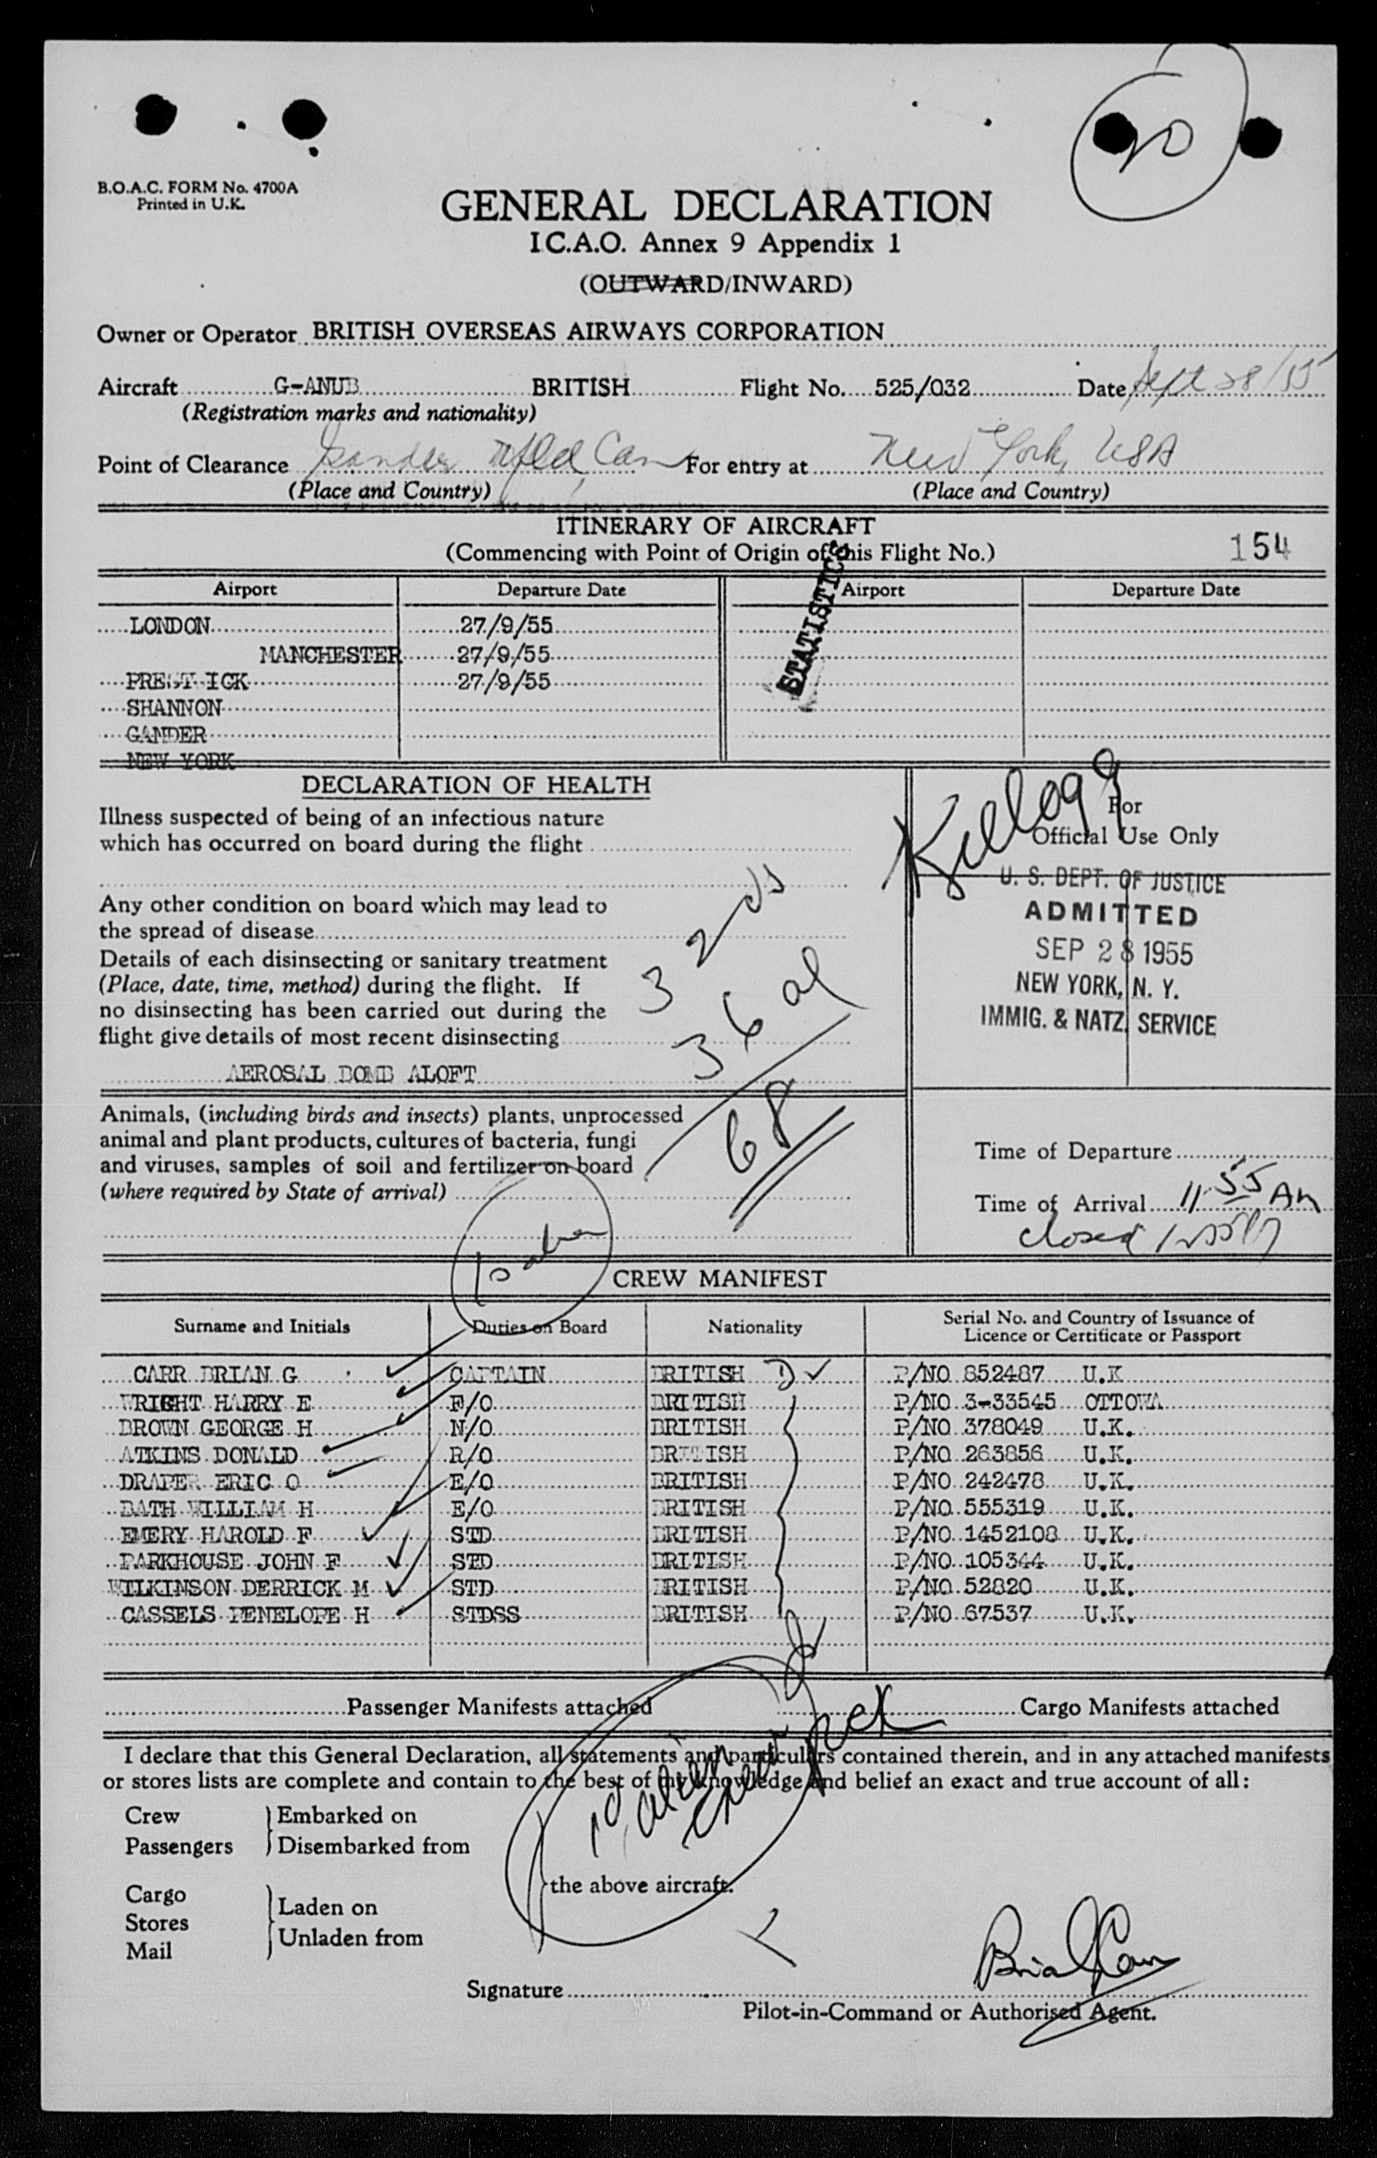 20
B.O.A.C. FORM No. 4700A
Printed in U.K.
GENERAL DECLARATION
I.C.A.O. Annex 9 Appendix 1
(OUTWARD/INWARD)
Owner or Operator BRITISH OVERSEAS AIRWAYS CORPORATION
Aircraft G-ANUB BRITISH Flight No. 525/032 Date Sept 28/55
(Registration marks and nationality)
Point of Clearance Gander Nfld, Can For entry at New York, USA
(Place and Country) (Place and Country)
ITINERARY OF AIRCRAFT
(Commencing with Point of Origin of this Flight No.) 154
STATISTICS
Airport Departure Date Airport Departure Date
LONDON 27/9/55
MANCHESTER 27/9/55
PRESTWICK 27/9/55
SHANNON
GANDER
NEW YORK
DECLARATION OF HEALTH
Illness suspected of being of an infectious nature
which has occurred on board during the flight
Any other condition on board which may lead to
the spread of disease
Details of each disinsecting or sanitary treatment
(Place, date, time, method) during the flight. If
no disinsecting has been carried out during the
flight give details of most recent disinsecting
AEROSAL BOMB ALOFT
32 us
36 al
68
Animals, (including birds and insects) plants, unprocessed
animal and plant products, cultures of bacteria, fungi
and viruses, samples of soil and fertilizer on board
(where required by State of arrival)
Kellogg
For
Official Use Only
U. S. DEPT. OF JUSTICE
ADMITTED
SEP 28 1955
NEW YORK, N. Y.
IMMIG. & NATZ. SERVICE
Time of Departure
Time of Arrival 11 55 AM
closed
10
CREW MANIFEST
Surname and Initials Duties on Board Nationality Serial No. and Country of Issuance of
Licence or Certificate or Passport
CARR BRIAN G CAPTAIN BRITISH D ✓ P/NO 852487 U.K
WRIGHT HARRY E F/O BRITISH P/NO 3-33545 OTTOWA
BROWN GEORGE H N/O BRITISH P/NO 378049 U.K.
ATKINS DONALD R/O BRITISH P/NO 263856 U.K.
DRAPER ERIC O E/O BRITISH P/NO 242478 U.K.
BATH WILLIAM H E/O BRITISH P/NO 555319 U.K.
EMERY HAROLD F STD BRITISH P/NO 1452108 U.K.
PARKHOUSE JOHN F STD BRITISH P/NO 105344 U.K.
WILKINSON DERRICK M STD BRITISH P/NO 52820 U.K.
CASSELS PENELOPE H STDSS BRITISH P/NO 67537 U.K.
Passenger Manifests attached Cargo Manifests attached
I declare that this General Declaration, all statements and particulars contained therein, and in any attached manifests
or stores lists are complete and contain to the best of my knowledge and belief an exact and true account of all:
10 alien
crew
Crew } Embarked on
Passengers } Disembarked from
the above aircraft.
Cargo
Stores } Laden on
Mail } Unladen from
Signature Brian G Carr
Pilot-in-Command or Authorised Agent.